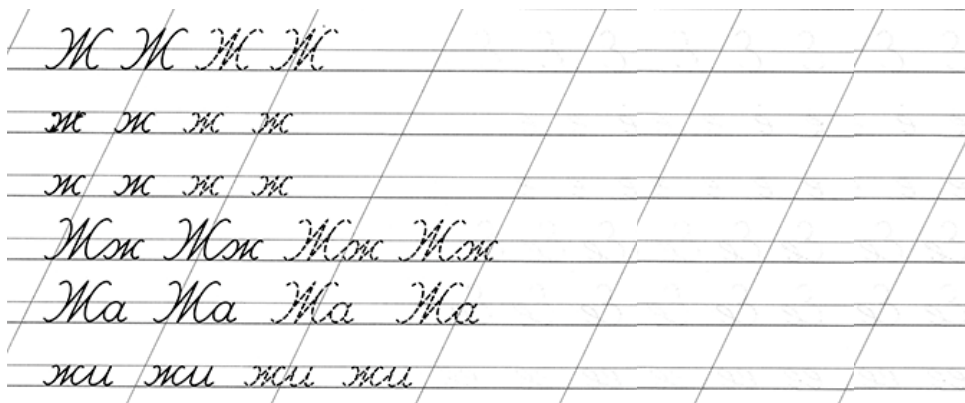 Ж Ж Ж Ж
ж ж ж ж
ж ж ж ж
Жж Жж Жж Жж
Жа Жа Жа Жа
жи жи жи жи